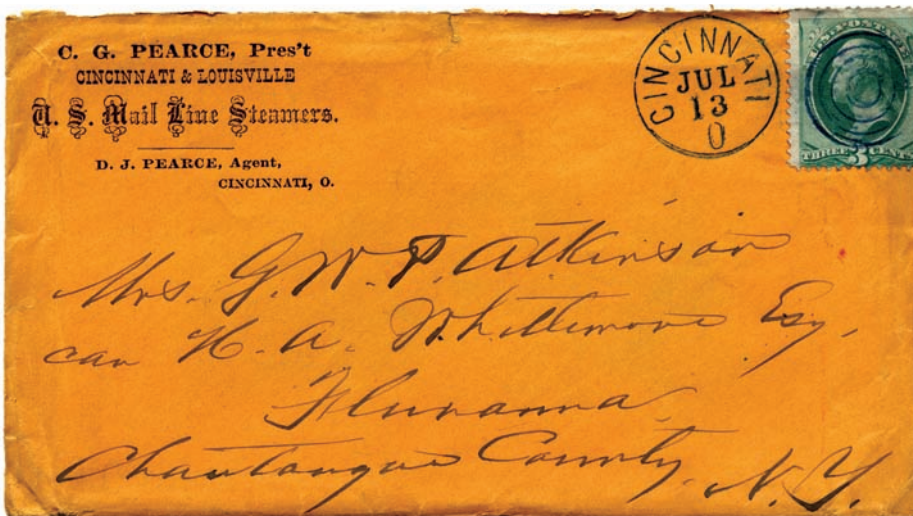 C. G. PEARCE, Pres't
CINCINNATI & LOUISVILLE
U. S. Mail Line Steamers.
D. J. PEARCE, Agent,
CINCINNATI, O.
CINCINNATI
JUL
13
O
THREE 3 CENTS
Mrs. G. W. P. Atkinson
care H. A. Whittemore Esq.
Fluvanna
Chautauqua County
N. Y.